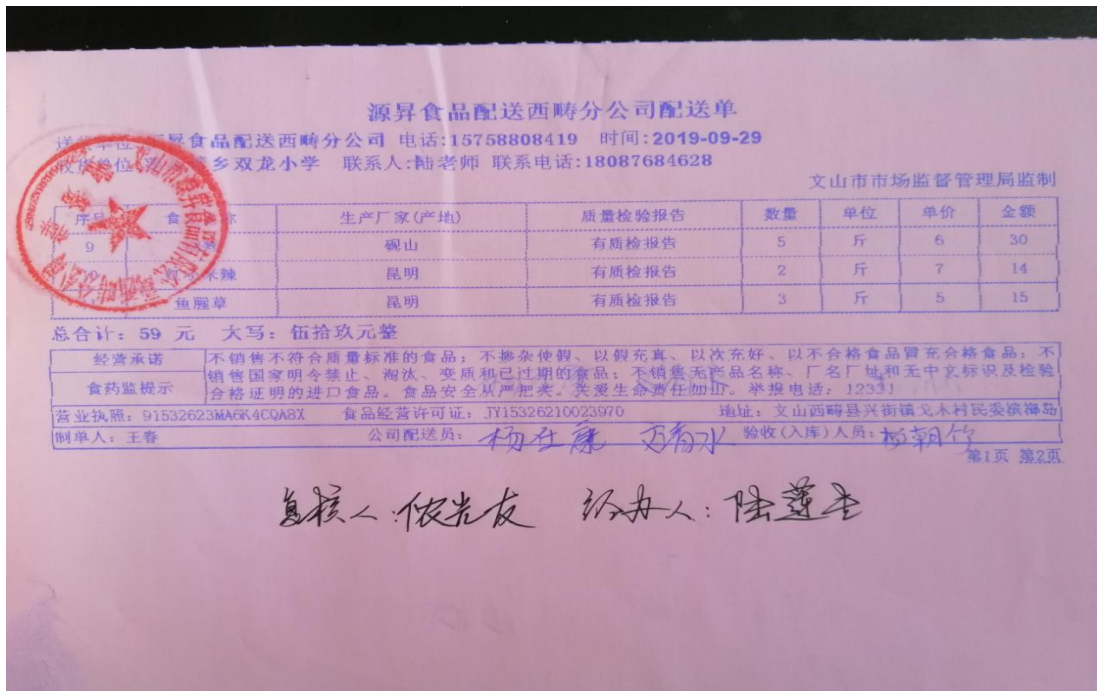 源昇食品配送西畴分公司配送单
昇食品配送西畴分公司 电话:15758808419 时间:2019-09-29
乡双龙小学 联系人:陆老师 联系电话:18087684628
文山市市场监督管理局监制
序号 食 称 生产厂家(产地) 质量检验报告 数量 单位 单价 金额
9 砚山 有质检报告 5 斤 6 30
米辣 昆明 有质检报告 2 斤 7 14
鱼腥草 昆明 有质检报告 3 斤 5 15
总合计: 59 元 大写: 伍拾玖元整
经营承诺 不销售不符合质量标准的食品; 不掺杂使假、以假充真、以次充好、以不合格食品冒充合格食品; 不
销售国家明令禁止、淘汰、变质和已过期的食品; 不销售无产品名称、厂名厂址和无中文标识及检验
食药监提示 合格证明的进口食品。食品安全从严把关。关爱生命责任如山。举报电话: 12331
营业执照: 91532623MA6K4CQA8X 食品经营许可证: JY15326210023970 地址: 文山西畴县兴街镇戈木村民委槟榔岛
制单人: 王春 公司配送员: 杨仕 验收(入库)人员: 杨朝
第1页 第2页
复核人:侬光友 经办人: 陆莲